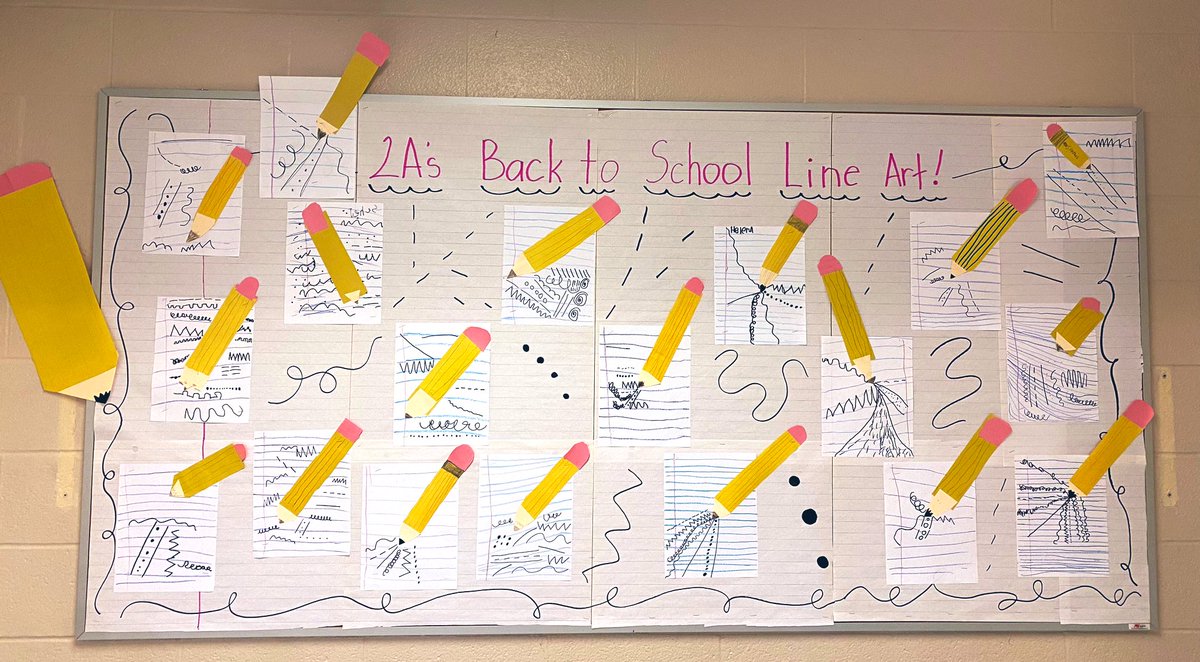 2A's Back to School Line Art!
Helena